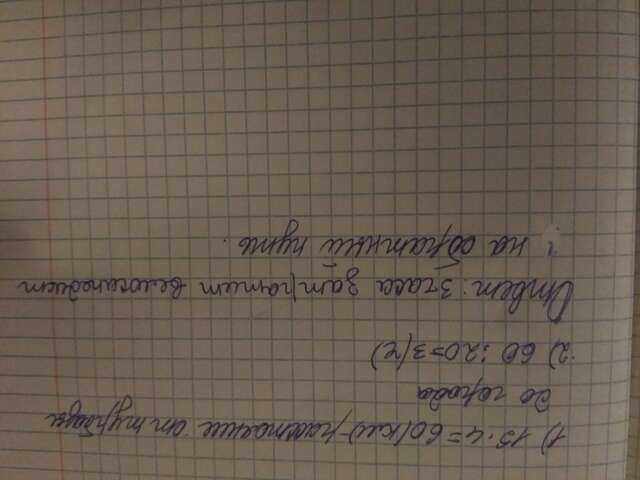 1) 15·4=60(км)-расстояние от турбазы
до города
2) 60:20=3(ч)
Ответ: 3 часа затратит велосипедист
на обратный путь.